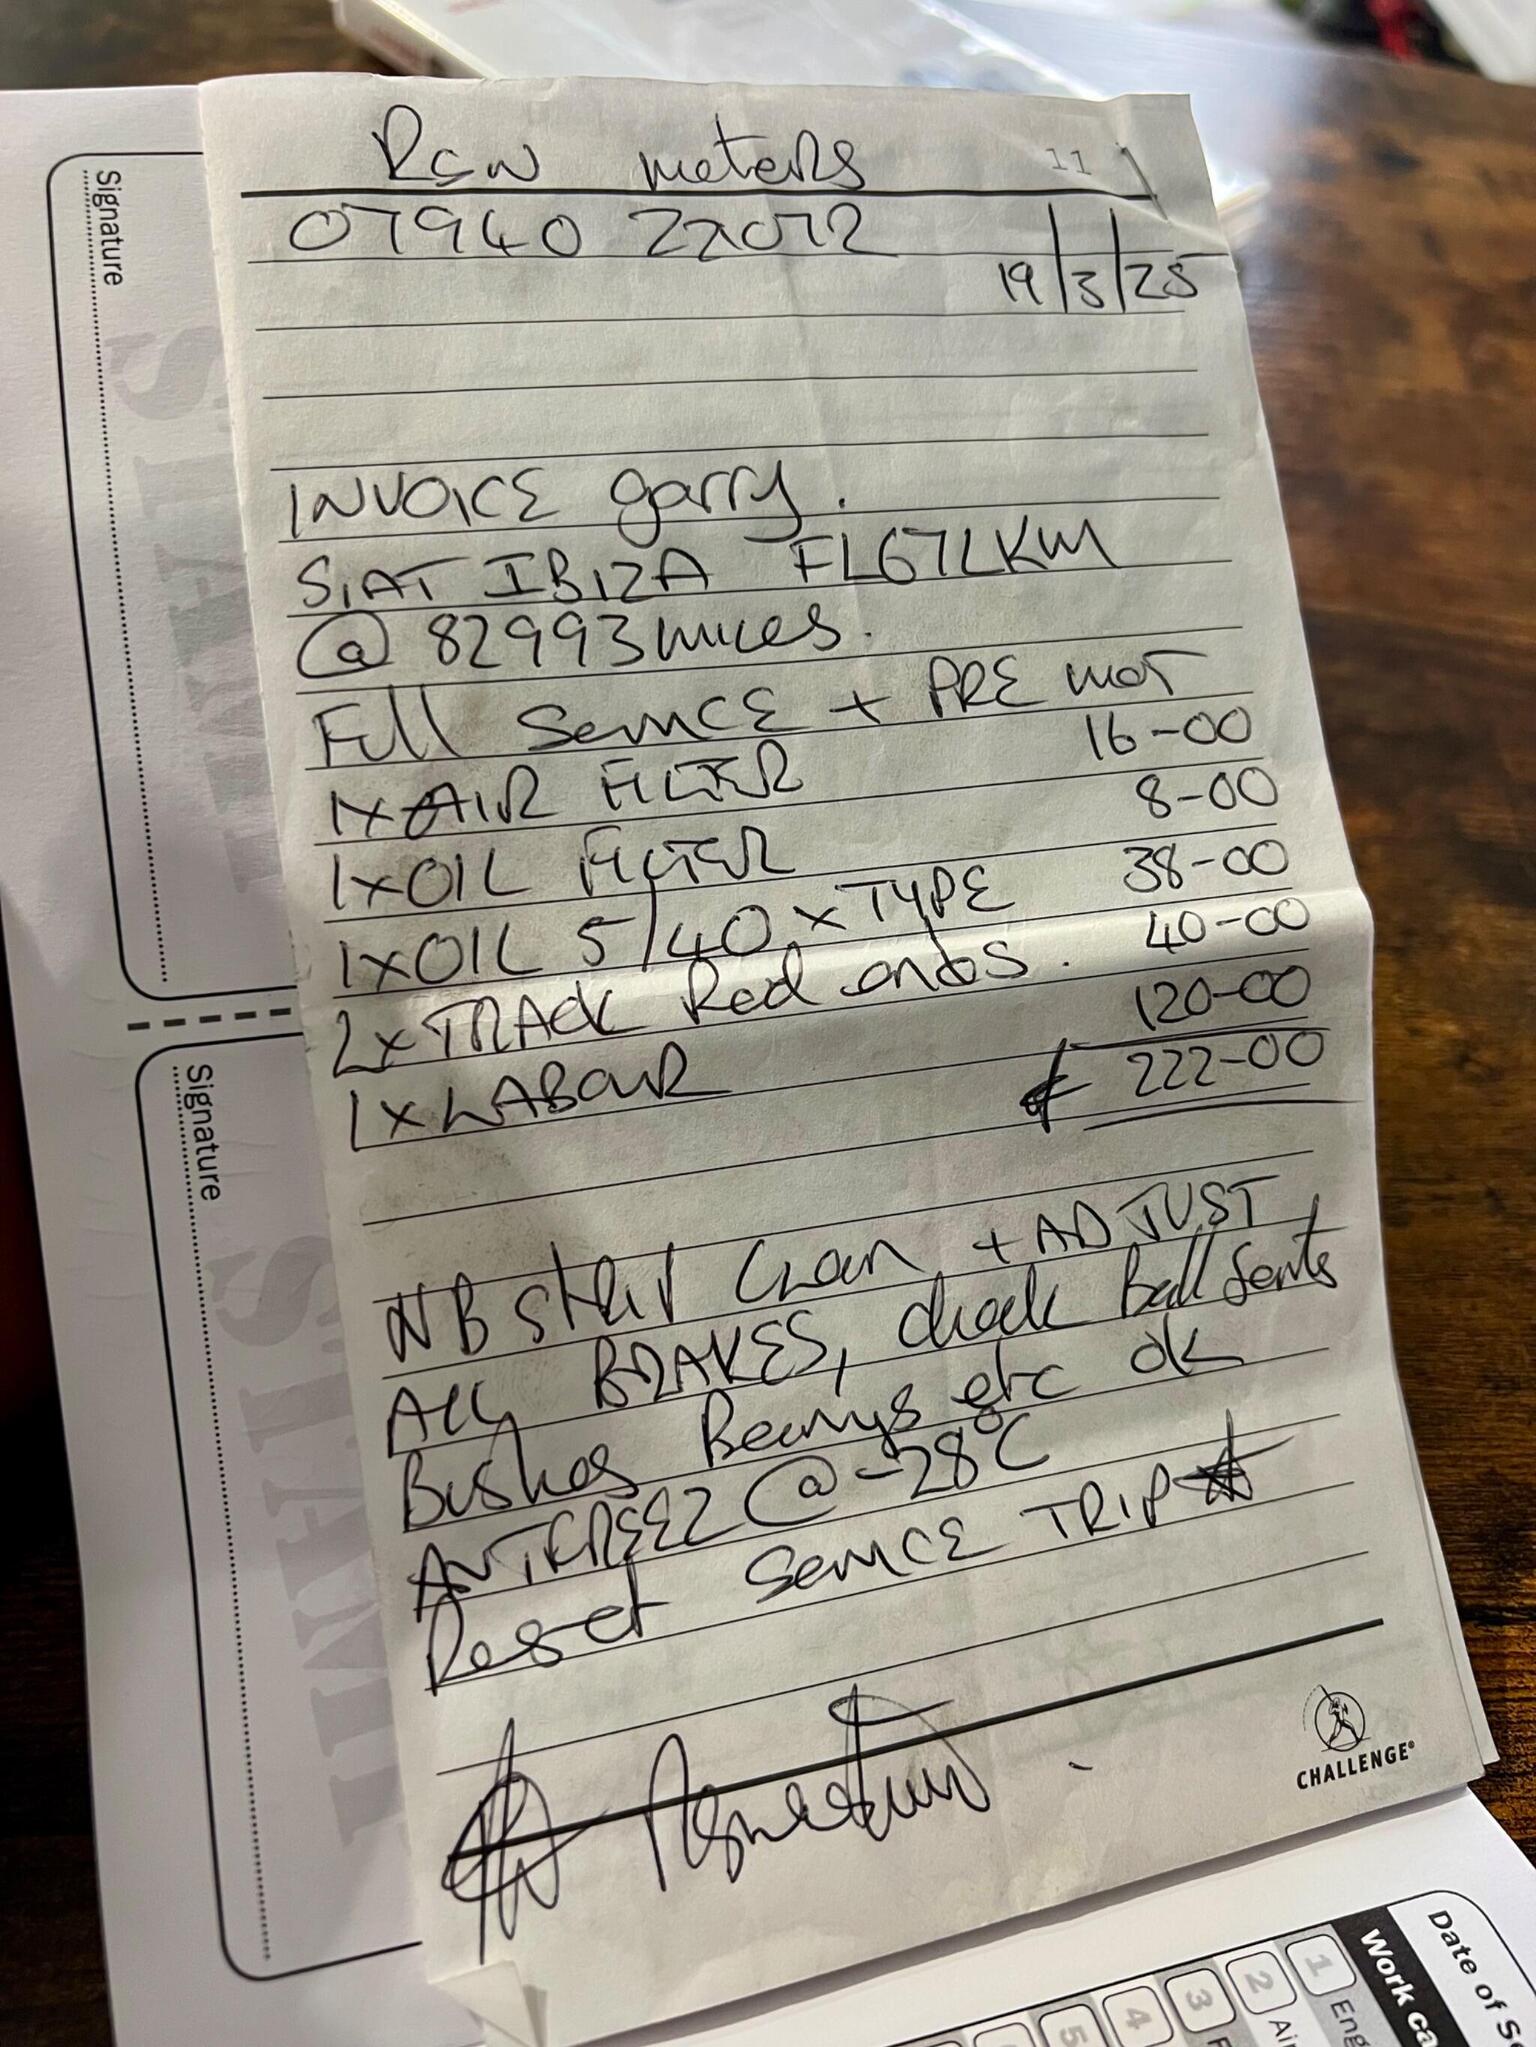 RGW moters
11
07940 22072
19/3/25
INVOICE garry.
SIAT IBIZA FL67LKM
@ 82993 miles.
Full Service + PRE mot
1x AIR FILTER 16-00
1x OIL FILTER 8-00
1x OIL 5/40 x TYPE 38-00
2x TRACK Rod ends. 40-00
1x LABOUR 120-00
£ 222-00
NB Clean + ADJUST
ALL BRAKES, check Ball Joints
Bushes Bearings etc ok
ANTIFREEZ @ -28°C
Reset Service TRIP
CHALLENGE®
Signature
STAMP
Signature
STAMP
Date of Se
Work ca
1 Eng
2 Air
3 F
4
5